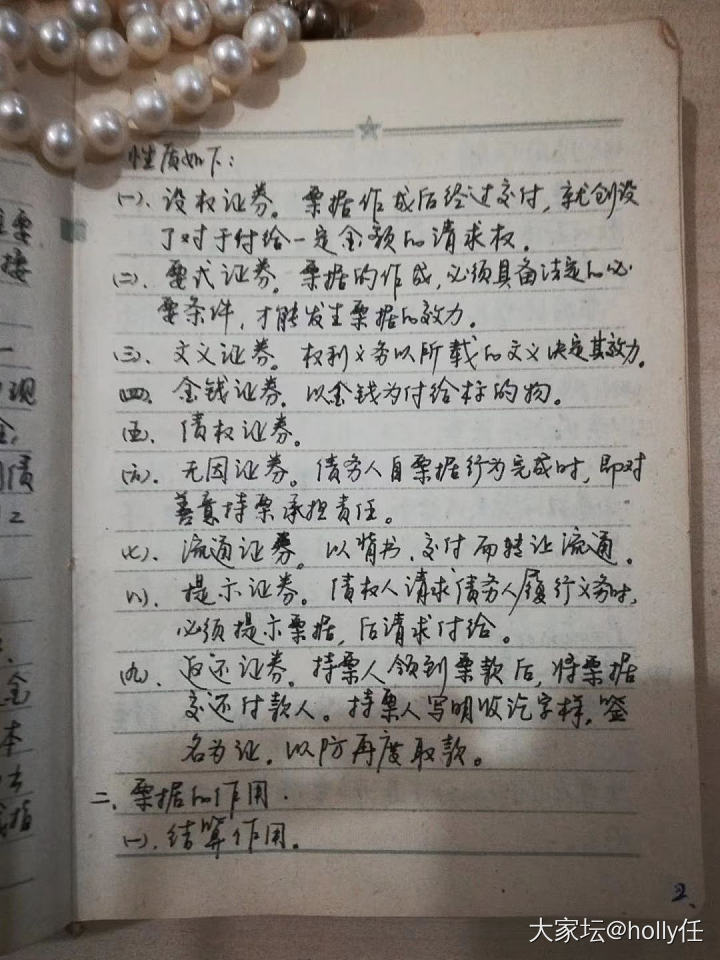 性质如下：
(一)、设权证券。票据作成后经过交付，就创设
了对于付给一定金额的请求权。
(二)、要式证券。票据的作成，必须具备法定的必
要条件，才能发生票据的效力。
(三)、文义证券。权利义务以所载的文义决定其效力。
(四)、金钱证券。以金钱为付给标的物。
(五)、债权证券。
(六)、无因证券。债务人自票据行为完成时，即对
善意持票承担责任。
(七)、流通证券。以背书、交付而转让流通。
(八)、提示证券。债权人请求债务人履行义务时，
必须提示票据，后请求付给。
(九)、返还证券。持票人领到票款后，将票据
交还付款人。持票人写明收讫字样，签
名为证，以防再度取款。
二、票据的作用。
(一)、结算作用。
2、
大家坛@holly任